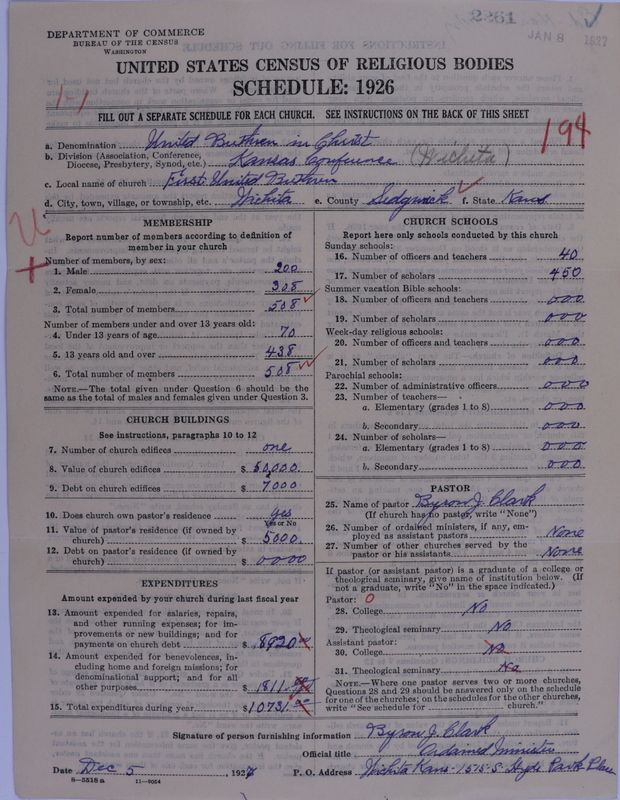 2261
JAN 8 1927
DEPARTMENT OF COMMERCE
BUREAU OF THE CENSUS
WASHINGTON
UNITED STATES CENSUS OF RELIGIOUS BODIES
SCHEDULE: 1926
FILL OUT A SEPARATE SCHEDULE FOR EACH CHURCH. SEE INSTRUCTIONS ON THE BACK OF THIS SHEET
194
a. Denomination United Brethren in Christ
b. Division (Association, Conference, Diocese, Presbytery, Synod, etc.) Kansas Conference (Wichita)
c. Local name of church First United Brethren
d. City, town, village, or township, etc. Wichita e. County Sedgwick f. State Kans
MEMBERSHIP
Report number of members according to definition of member in your church
Number of members, by sex:
1. Male 200
2. Female 308
3. Total number of members 508
Number of members under and over 13 years old:
4. Under 13 years of age 70
5. 13 years old and over 438
6. Total number of members 508
NOTE.—The total given under Question 6 should be the same as the total of males and females given under Question 3.
CHURCH BUILDINGS
See instructions, paragraphs 10 to 12
7. Number of church edifices one
8. Value of church edifices $ 50,000.
9. Debt on church edifices $ 7000
10. Does church own pastor's residence yes
Yes or No
11. Value of pastor's residence (if owned by church) $ 5000.
12. Debt on pastor's residence (if owned by church) $ 0000
EXPENDITURES
Amount expended by your church during last fiscal year
13. Amount expended for salaries, repairs, and other running expenses; for improvements or new buildings; and for payments on church debt $ 8920
14. Amount expended for benevolences, including home and foreign missions; for denominational support; and for all other purposes 1811
15. Total expenditures during year $ 10731
CHURCH SCHOOLS
Report here only schools conducted by this church
Sunday schools:
16. Number of officers and teachers 40
17. Number of scholars 450
Summer vacation Bible schools:
18. Number of officers and teachers 000
19. Number of scholars 000
Week-day religious schools:
20. Number of officers and teachers 000
21. Number of scholars 000
Parochial schools:
22. Number of administrative officers 000
23. Number of teachers—
a. Elementary (grades 1 to 8) 000
b. Secondary 000
24. Number of scholars—
a. Elementary (grades 1 to 8) 000
b. Secondary 000
PASTOR
25. Name of pastor Byron J. Clark
(If church has no pastor, write "None")
26. Number of ordained ministers, if any, employed as assistant pastors None
27. Number of other churches served by the pastor or his assistants None
If pastor (or assistant pastor) is a graduate of a college or theological seminary, give name of institution below. (If not a graduate, write "No" in the space indicated.)
Pastor: 0
28. College No
29. Theological seminary No
Assistant pastor:
30. College No
31. Theological seminary No
NOTE.—Where one pastor serves two or more churches, Questions 28 and 29 should be answered only on the schedule for one of the churches; on the schedule for the other churches, write "See schedule for church."
Signature of person furnishing information Byron J. Clark
Official title Ordained Minister
Date Dec 5, 1927 P. O. Address Wichita Kans - 1515 S. Hyde Park Place
8—5518 a 11—9054